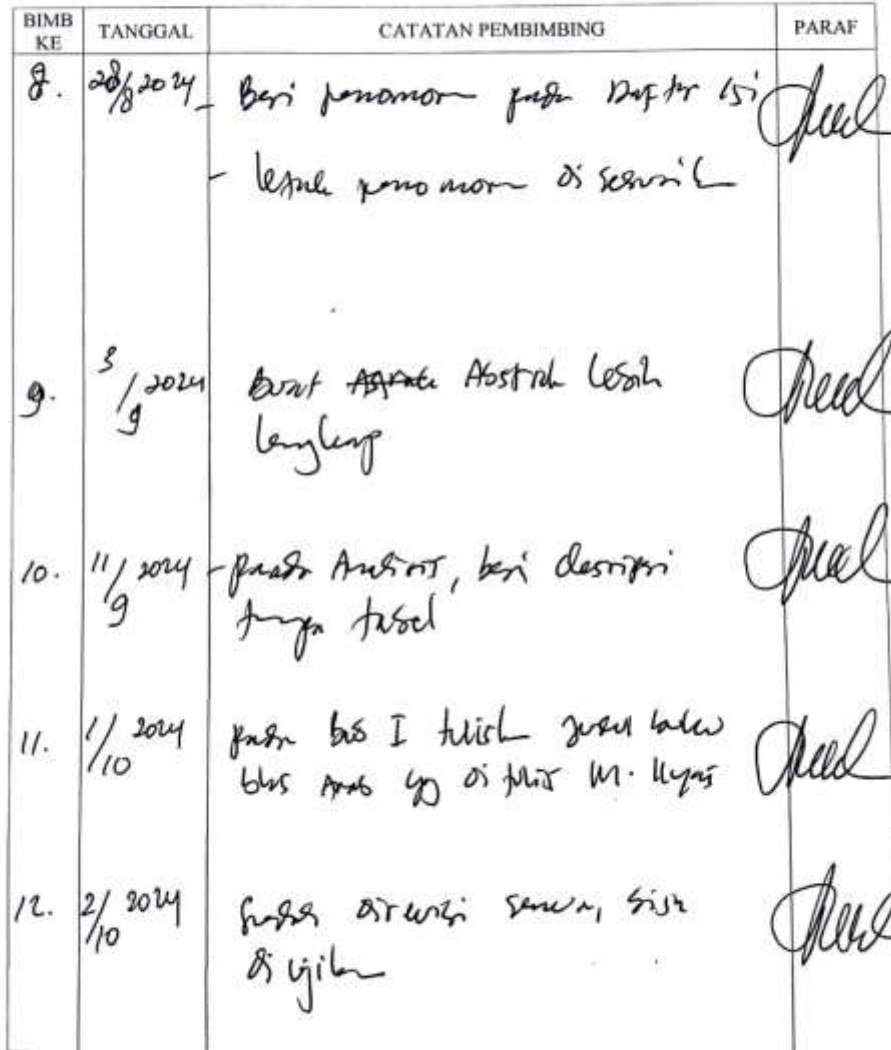 BIMB KE TANGGAL CATATAN PEMBIMBING PARAF
8. 28/8 2024 - Beri penomoran pada Daftar isi
- letak penomoran disesuaikan
9. 3/9 2024 Buat Abstrak lebih
lengkap
10. 11/9 2024 - pada Analisis, beri deskripsi
tabel
11. 1/10 2024 pada bab I tulislah judul buku
bhs Arab yg ditulis M. Ilyas
12. 2/10 2024 Sudah direvisi semua, bisa
diujikan